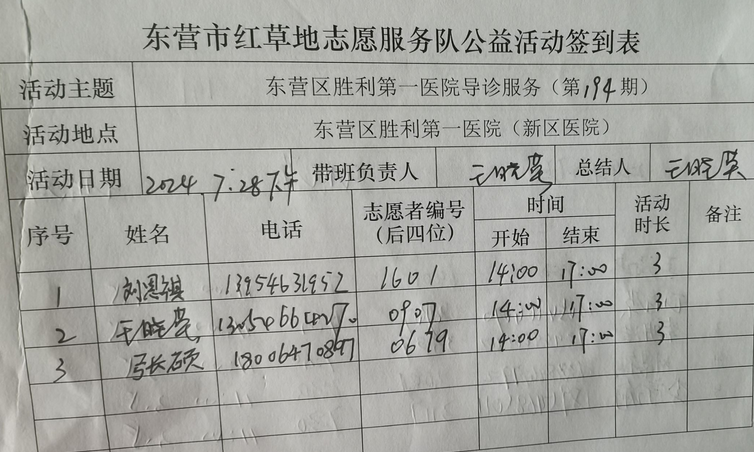 东营市红草地志愿服务队公益活动签到表
活动主题 东营区胜利第一医院导诊服务（第194期）
活动地点 东营区胜利第一医院（新区医院）
活动日期 2024.7.28下午 带班负责人 王晓莺 总结人 王晓莺
序号 姓名 电话 志愿者编号（后四位） 时间 开始 结束 活动时长 备注
1 刘恩祺 13954631952 1601 14:00 17:00 3
2 王晓莺 0907 14:00 17:00 3
3 弓长硕 18006470897 0679 14:00 17:00 3